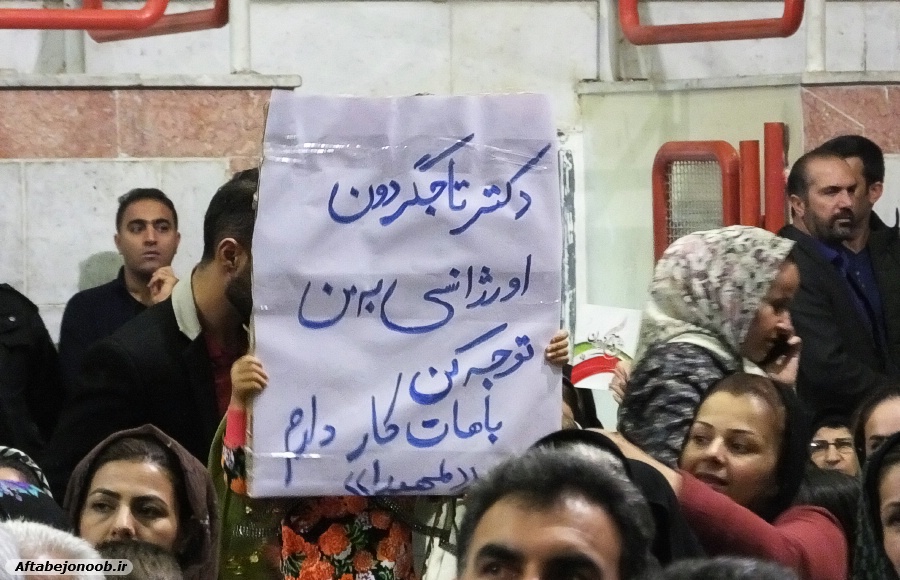 دکتر تاجگردون
اورژانسی به من
توجه کن
باهات کار دارم
Aftabejonoob.ir